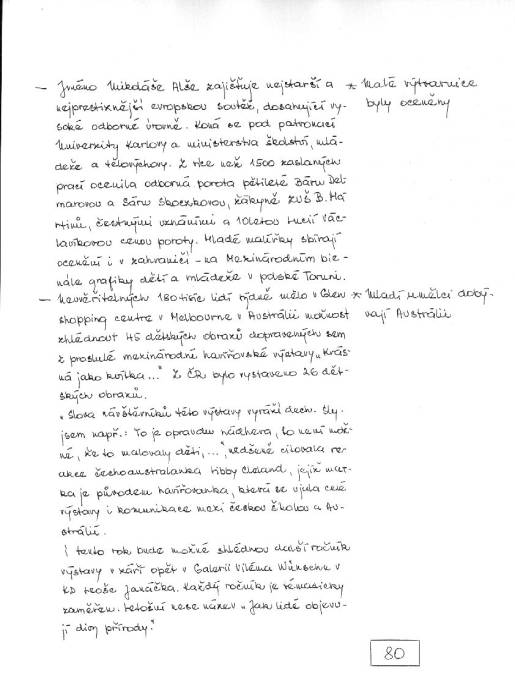 – Jméno Mikoláše Alše zajišťuje nejstarší a
nejprestižnější evropskou soutěž, dosahující vy-
soké odborné úrovně. Koná se pod patronací
Univerzity Karlovy a ministerstva školství, mlá-
deže a tělovýchovy. Z více než 1500 zaslaných
prací ocenila odborná porota pětileté Báru Del-
marovou a Sáru Skoczkovou, žákyně ZUŠ B. Ma-
rtinů, čestnými uznáními a 10letou Lucii Vác-
lavíkovou cenou poroty. Mladé malířky sbírají
ocenění i v zahraničí – na Mezinárodním bie-
nále grafiky dětí a mládeže v polské Toruni.
* Malé výtvarnice
byly oceněny
– Neuvěřitelných 180 tisíc lidí týdně mělo v Glen
shopping centre v Melbourne v Austrálii možnost
zhlédnout 45 dětských obrazů dopravených sem
z proslulé mezinárodní havířovské výstavy „Krás-
ná jako kvítka..." Z ČR bylo vystaveno 26 dět-
ských obrazů.
* Mladí umělci dobý-
vají Austrálii
"Slova návštěvníků této výstavy vyráží dech. Sly-
jsem např.: To je opravdu nádhera, to není mož-
né, že to malovaly děti,...", nadšeně citovala re-
akce čechoaustralanka Libby Cleland, jejíž mat-
ka je původem havířovanka, která se ujala celé
výstavy i komunikace mezi českou školou a Au-
strálií.
I tento rok bude možné shlédnou další ročník
výstavy v září opět v Galerii Viléma Wünsche v
KD Leoše Janáčka. Každý ročník je tématicky
zaměřen. Letošní nese název „Jak lidé objevu-
jí divy přírody."
80